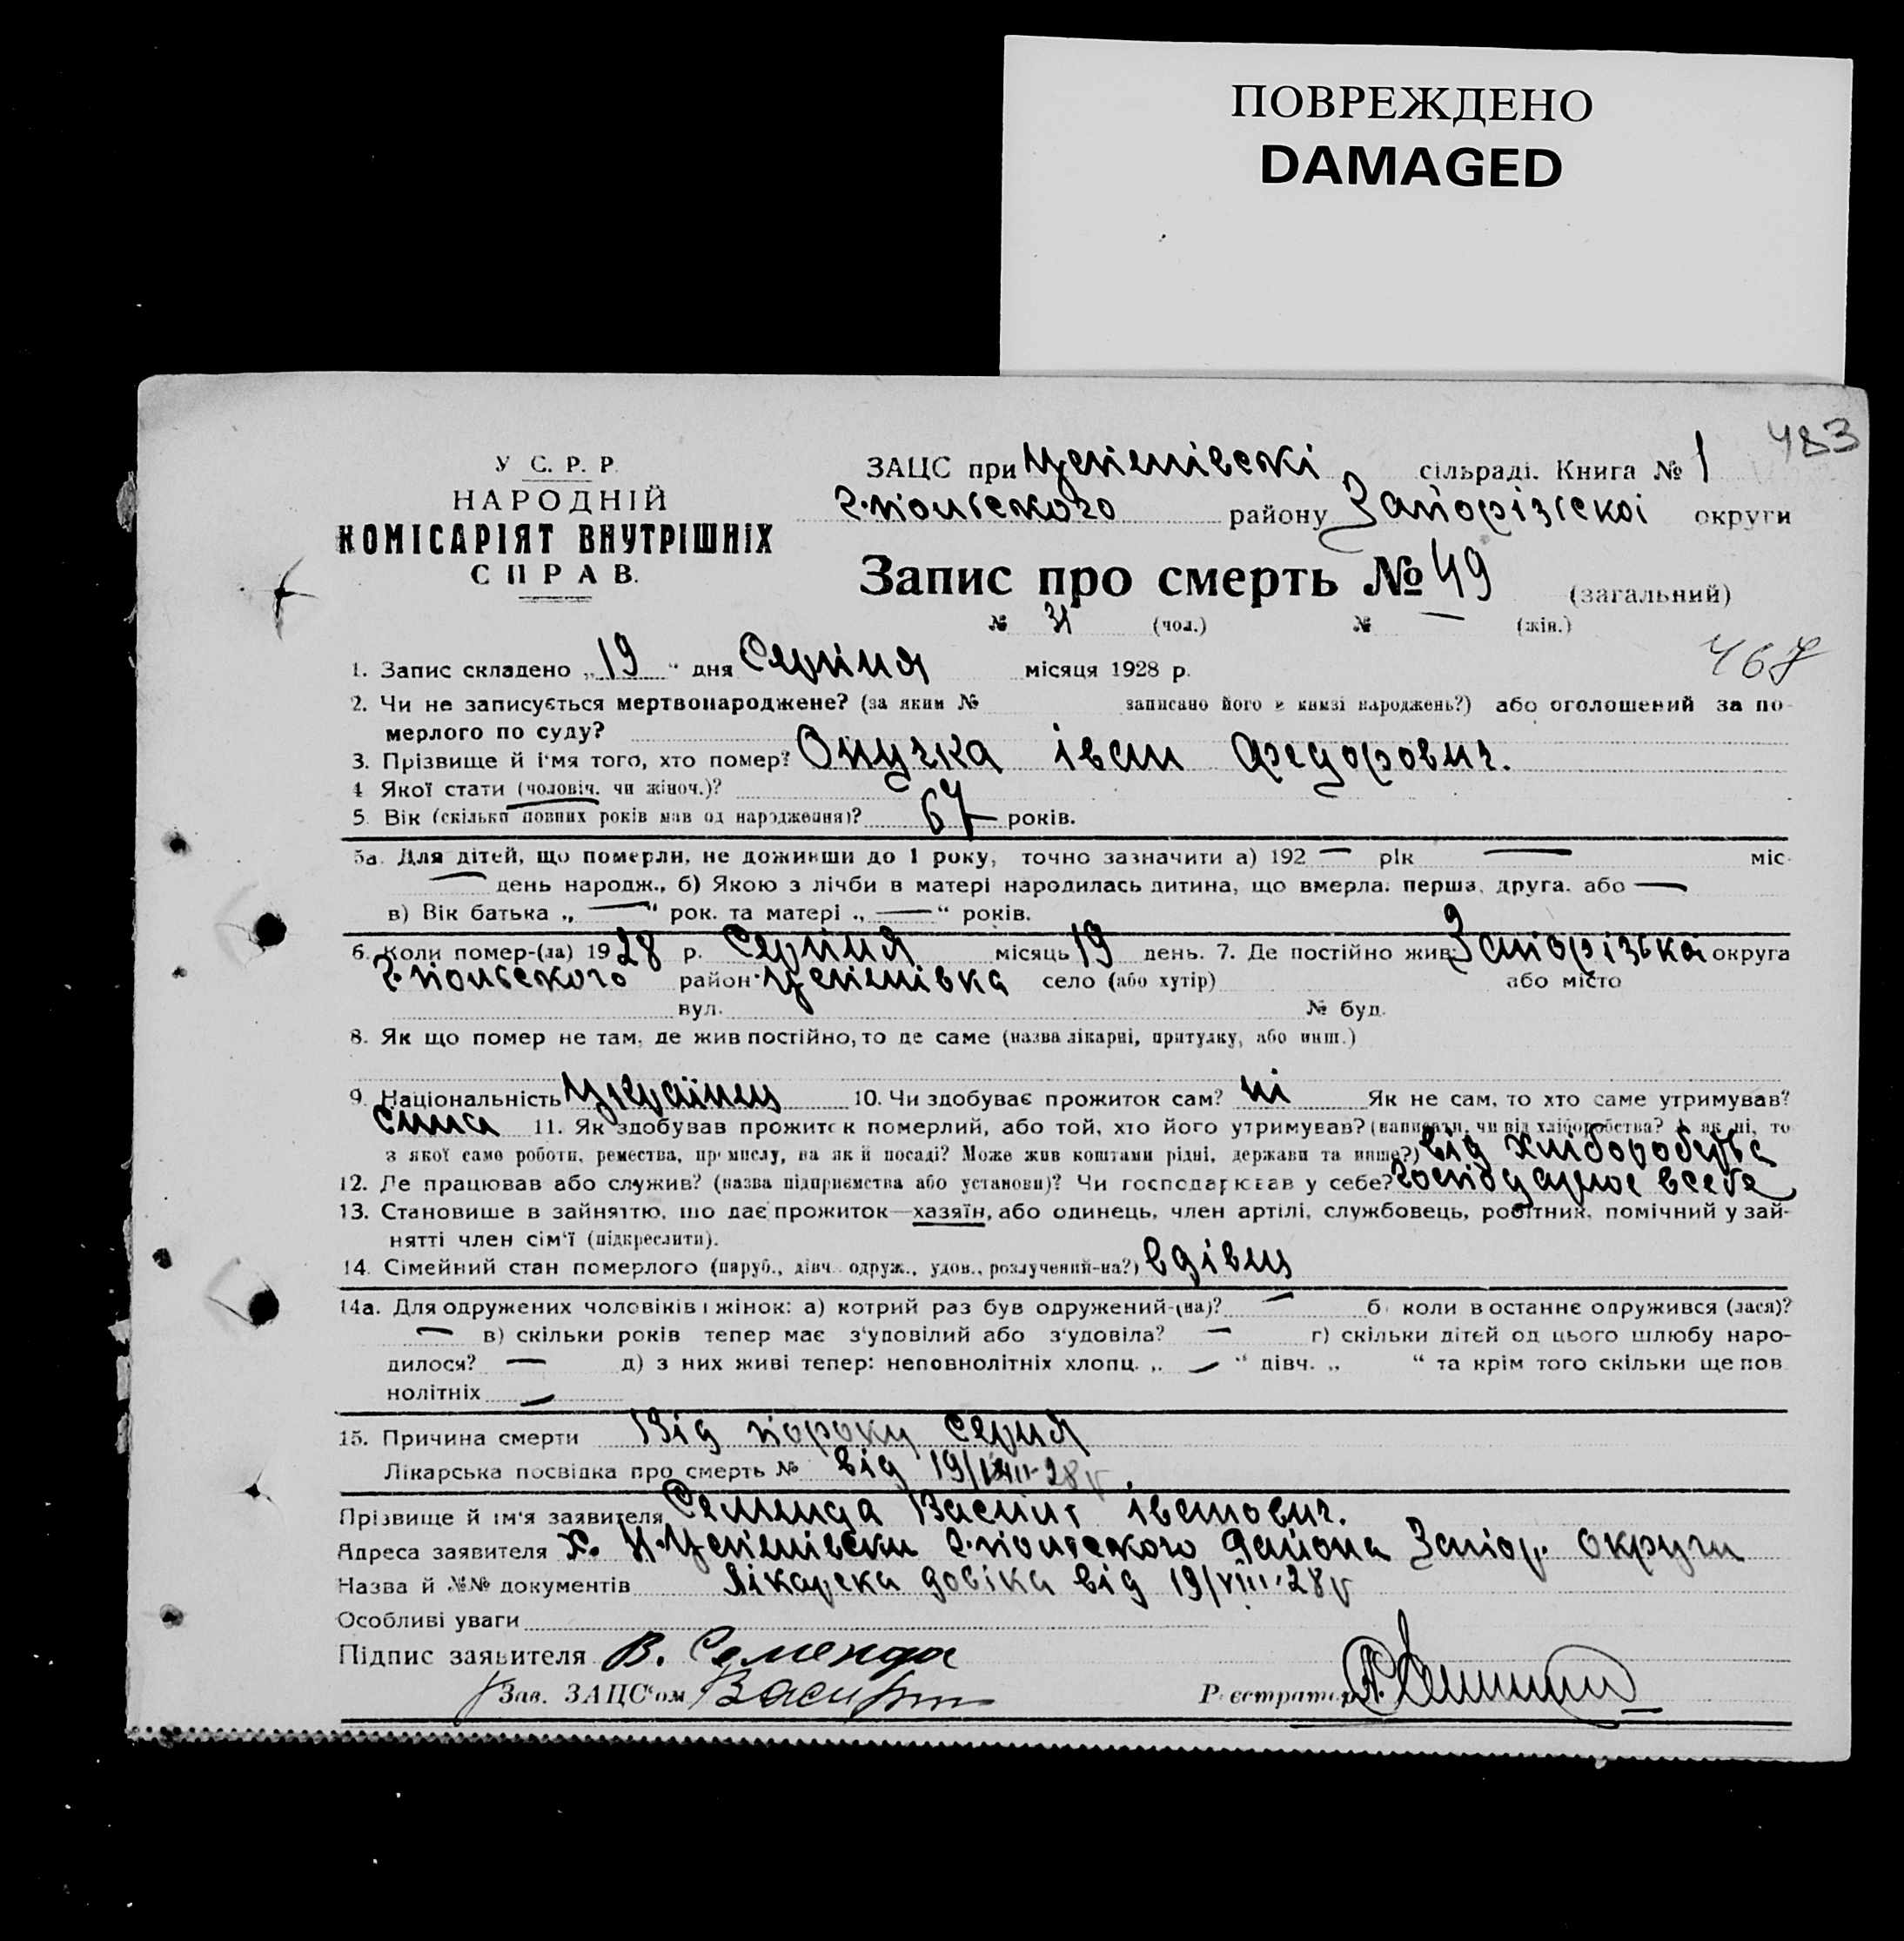 ПОВРЕЖДЕНО
DAMAGED
483
У С. Р. Р.
НАРОДНІЙ
КОМІСАРІЯТ ВНУТРІШНІХ
СПРАВ.
ЗАЦС при сільраді. Книга № 1
г.польського району Запорізської округи
Запис про смерть № 49 (загальний)
№ 31 (чол.) № — (жін.)
467
1. Запис складено „19“ дня Серпня місяця 1928 р.
2. Чи не записується мертвонароджене? (за яким № записано його в книзі народжень?) або оголошений за по-
мерлого по суду?
3. Прізвище й ім'я того, хто помер? Онучка іван Федорович.
4 Якої стати (чоловіч. чи жіноч.)?
5. Вік (скільки повних років мав од народження)? 67 років.
5а. Для дітей, що померли, не доживши до 1 року, точно зазначити а) 192 — рік — міс-
— день народж., б) Якою з лічби в матері народилась дитина, що вмерла: перша, друга, або —
в) Вік батька „—“ рок. та матері „—“ років.
6. Коли помер-(ла) 1928 р. Серпня місяць 19 день. 7. Де постійно жив: Запорізької округа
г.польського район село (або хутір) або місто
вул. № буд.
8. Як що помер не там, де жив постійно, то де саме (назва лікарні, притулку, або инш.)
9. Національність Українец 10. Чи здобуває прожиток сам? ні Як не сам, то хто саме утримував?
сина 11. Як здобував прожиток померлий, або той, хто його утримував? (написати, чи від хліборобства? А як ні, то
з якої само роботи, ремества, промислу, на якій посаді? Може жив коштами рідні, держави та инше?) від хліборобства
12. Де працював або служив? (назва підприємства або установи)? Чи господарював у себе? господарює в себе
13. Становище в зайняттю, що дає прожиток—хазяїн, або одинець, член артілі, службовець, робітник, помічний у зай-
нятті член сім'ї (підкреслити).
14. Сімейний стан померлого (паруб., дівч. одруж., удов., розлучений-на?) вдівец
14а. Для одружених чоловіків і жінок: а) котрий раз був одружений-(на)? — б) коли в останнє одружився (лася)?
— в) скільки років тепер має з'удовілий або з'удовіла? — г) скільки дітей од цього шлюбу наро-
дилося? — д) з них живі тепер: неповнолітніх хлопц. „—“ дівч. „ “ та крім того скільки ще пов
нолітніх —
15. Причина смерти Від пороку серця
Лікарська посвідка про смерть № від 19/VIII-28р.
Прізвище й ім'я заявителя Семенда Василь іванович.
Адреса заявителя х. г.польського района Запор. округи
Назва й №№ документів Лікарска довіка від 19/VIII-28р
Особливі уваги
Підпис заявителя В. Семенда
Зав. ЗАЦС'ом
Реєстратор